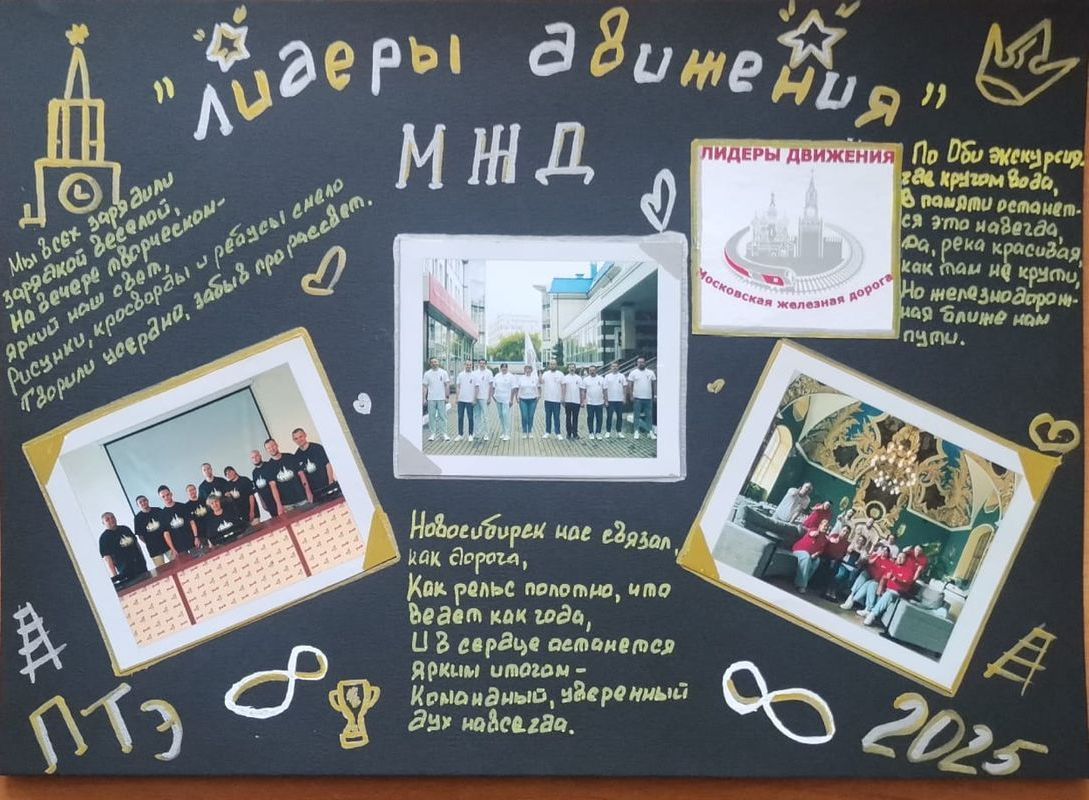 "Лидеры движения"
МЖД
Мы всех зарядили
зарядкой веселой,
На вечере творческом-
яркий наш свет,
Рисунки, кроссворды и ребусы смело
Творили усердно, забыв про рассвет.
ЛИДЕРЫ ДВИЖЕНИЯ
Московская железная дорога
По Оби экскурсия,
где кругом вода,
В памяти останет-
ся это навсегда,
река красивая,
как там не крути,
Но железнодорож-
ная ближе нам
пути.
Новосибирск нас связал,
как дорога,
Как рельс полотно, что
ведет как года,
И в сердце останется
ярким итогом-
Командный, уверенный
дух навсегда.
ПТЭ
2025